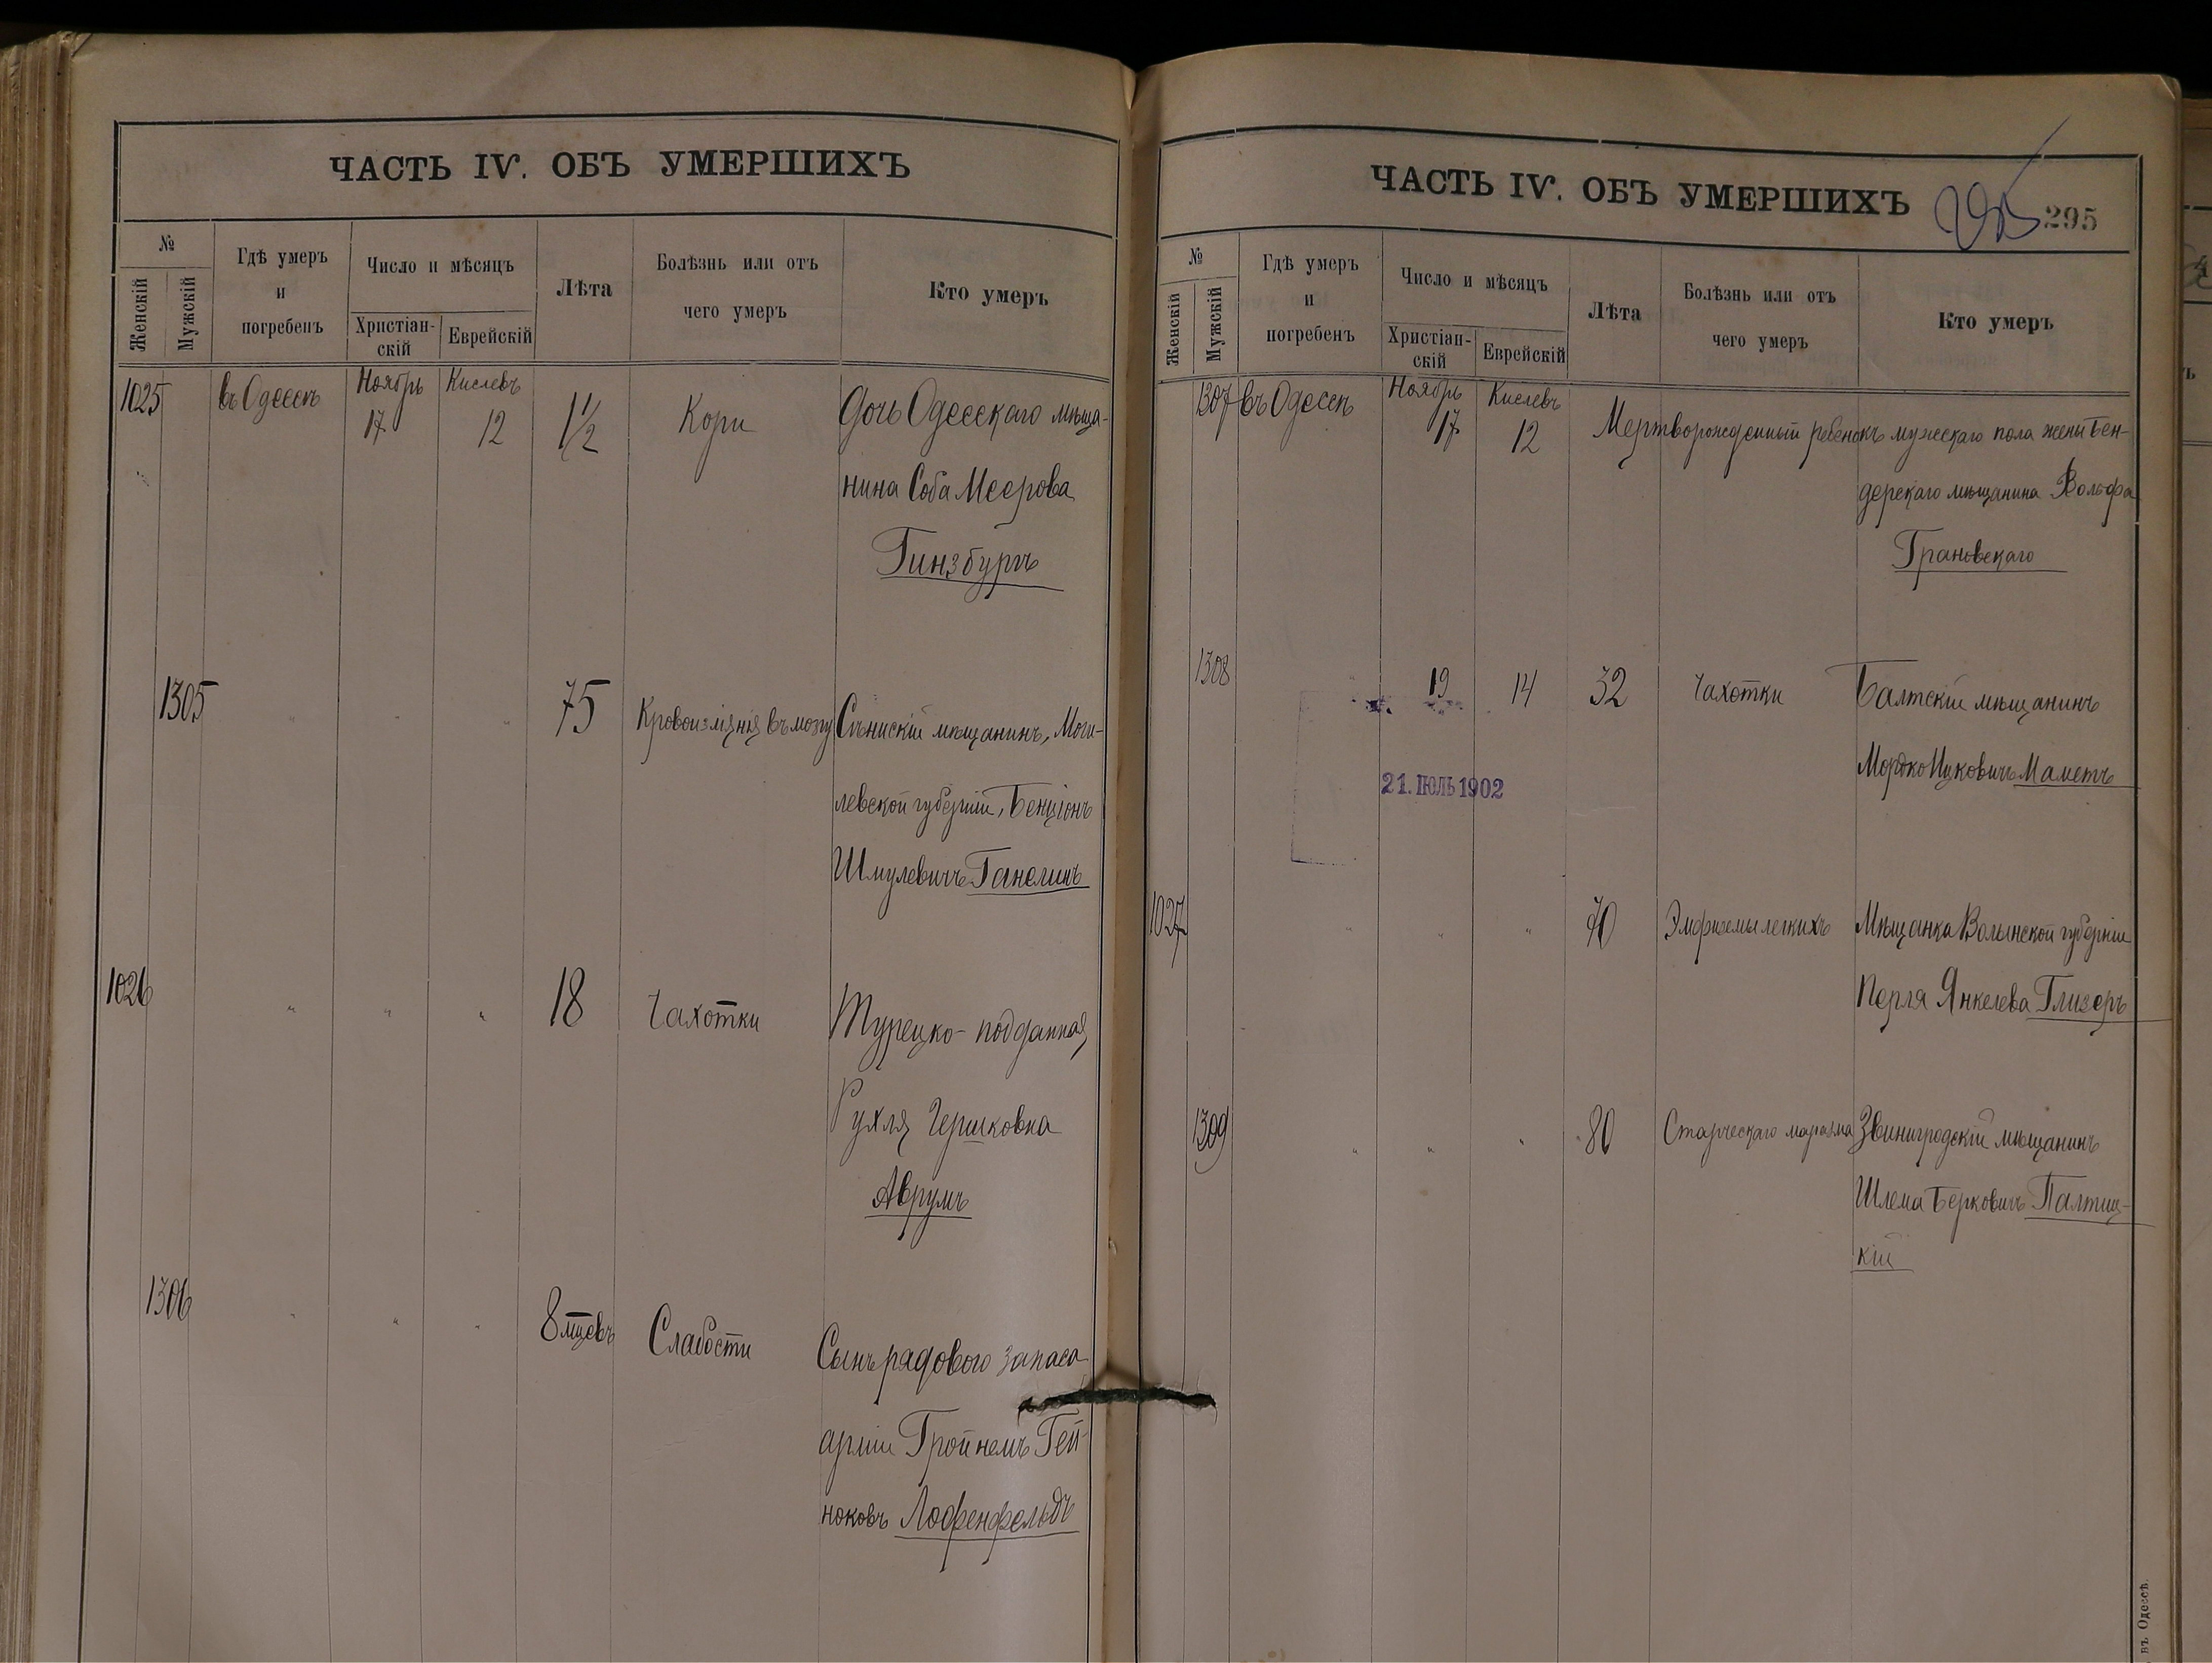 ЧАСТЬ IV. ОБЪ УМЕРШИХЪ
№
Женскій
Мужскій
Гдѣ умеръ
и
погребенъ
Число и мѣсяцъ
Христіан-
скій
Еврейскій
Лѣта
Болѣзнь или отъ
чего умеръ
Кто умеръ
1025 въ Одессѣ Ноябрь 17 Кислевъ 12 1½ Кори Дочь Одесскаго мѣща-
нина Соба Меерова
Гинзбургъ
1305 " " " 75 Кровоизліянія въ мозгу Сѣнискій мѣщанинъ, Моги-
левской губерніи, Бенціонъ
Шмулевичъ Ганелинъ
1026 " " " 18 Чахотки Турецко-подданная
Рухля Гершковна
Аврумъ
1306 " " " 8 мцевъ Слабости Сынъ рядового запаса
арміи Гройнемъ Гей-
ноковъ Лофенфельдъ
ЧАСТЬ IV. ОБЪ УМЕРШИХЪ
295
295
№
Женскій
Мужскій
Гдѣ умеръ
и
погребенъ
Число и мѣсяцъ
Христіан-
скій
Еврейскій
Лѣта
Болѣзнь или отъ
чего умеръ
Кто умеръ
1307 въ Одессѣ Ноябрь 17 Кислевъ 12 Мертворожденный ребенокъ мужскаго пола жены Бен-
дерскаго мѣщанина Вольфа
Грановскаго
1308 " 19 14 32 Чахотки Балтскій мѣщанинъ
Мордко Ицковичъ Маметъ
21. ІЮЛЬ 1902
1027 " " " 70 Эмфиземы легкихъ Мѣщанка Волынской губерніи
Перля Янкелева Глизеръ
1309 " " " 80 Старческаго маразма Звинигродскій мѣщанинъ
Шлема Берковичъ Палтиц-
кій
въ Одессѣ.